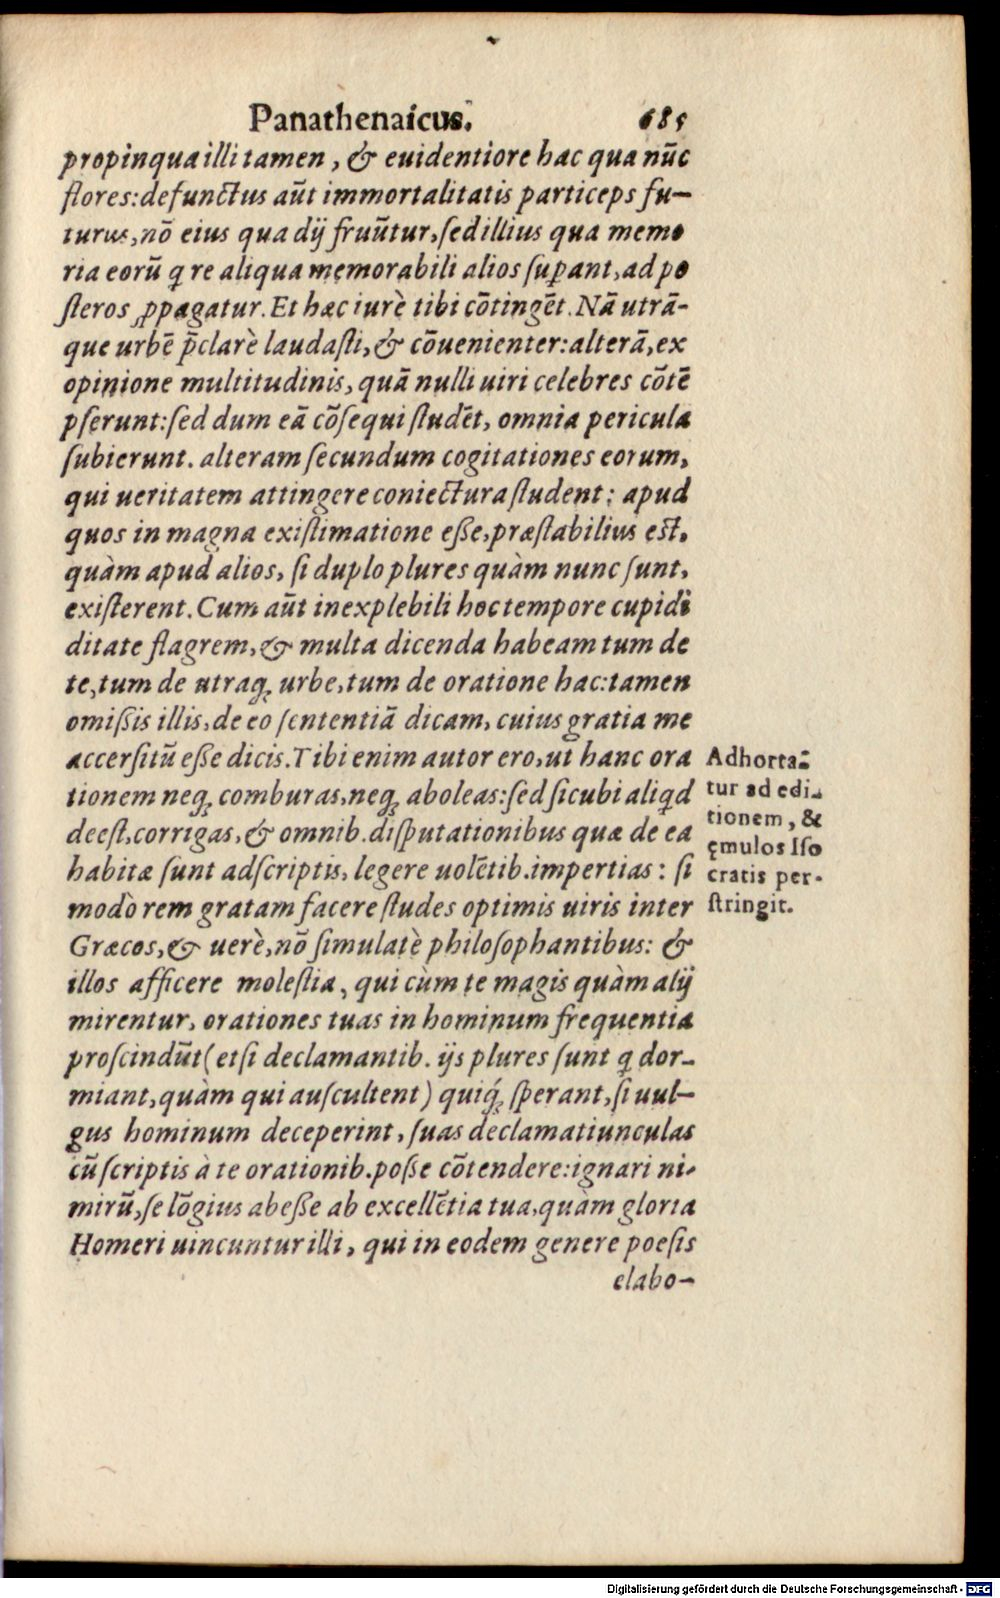 Panathenaicus. 685
propinqua illi tamen, & euidentiore hac qua nũc
flores: defunctus aũt immortalitatis particeps fu-
turus, nõ eius qua dij fruũtur, sed illius qua memo
ria eorũ q re aliqua memorabili alios suꝑant, ad po
steros ꝓpagatur. Et hæc iurè tibi cõtingẽt. Nã utrã-
que urbẽ p̃clarè laudasti, & cõuenienter: alterã, ex
opinione multitudinis, quã nulli uiri celebres cõtẽ
pserunt: sed dum eã cõsequi studẽt, omnia pericula
subierunt. alteram secundum cogitationes eorum,
qui ueritatem attingere coniectura student: apud
quos in magna existimatione esse, præstabilius est,
quàm apud alios, si duplo plures quàm nunc sunt,
existerent. Cum aũt inexplebili hoc tempore cupidi
ditate flagrem, & multa dicenda habeam tum de
te, tum de utraqꝫ urbe, tum de oratione hac: tamen
omissis illis, de eo sententiã dicam, cuius gratia me
accersitũ esse dicis. Tibi enim autor ero, ut hanc ora
tionem neqꝫ comburas, neqꝫ aboleas: sed sicubi aliqd
deest, corrigas, & omnib. disputationibus quæ de ea
habitæ sunt adscriptis, legere uolẽtib. impertias: si
modò rem gratam facere studes optimis uiris inter
Græcos, & uerè, nõ simulatè philosophantibus: &
illos afficere molestia, qui cùm te magis quàm alij
mirentur, orationes tuas in hominum frequentia
proscindũt (etsi declamantib. ijs plures sunt q dor-
miant, quàm qui auscultent) quiqꝫ sperant, si uul-
gus hominum deceperint, suas declamatiunculas
cũ scriptis à te orationib. posse cõtendere: ignari ni-
mirũ, se lõgius abesse ab excellẽtia tua, quàm gloria
Homeri uincuntur illi, qui in eodem genere poesis
elabo-
Adhorta-
tur ad edi-
tionem, &
ęmulos Iso
cratis per-
stringit.
Digitalisierung gefördert durch die Deutsche Forschungsgemeinschaft - DFG